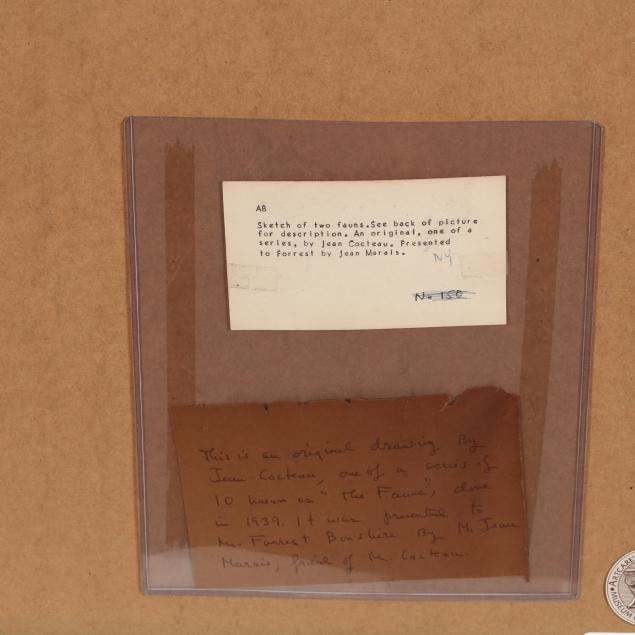 AB
Sketch of two fauns.See back of picture
for description. An original, one of a
series, by Jean Cocteau. Presented
to Forrest by Jean Marais.
NY
No. 150
This is an original drawing By
Jean Cocteau, one of a series of
10 known as "the Fauns", done
in 1939. It was presented to
Mr. Forrest Bonshire By M. Jean
Marais, friend of M. Cocteau.
ARTCARE
MUSEUM